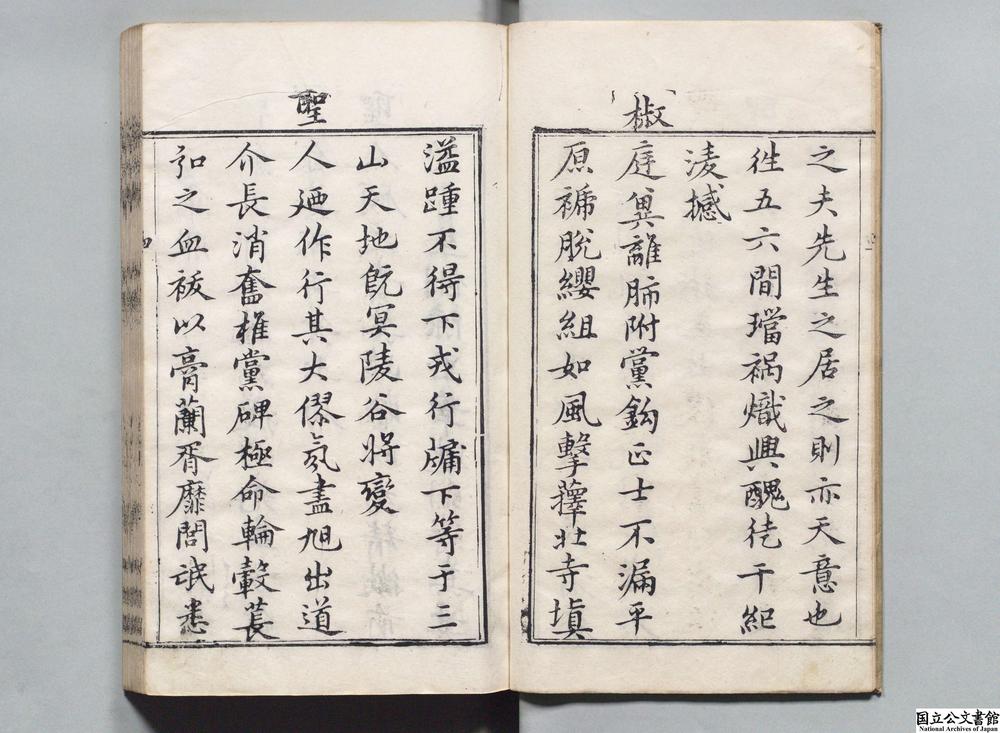 之夫先生之居之則亦天意也
徃五六間璫禍熾興醜徒干紀
淩撼
椒
庭異離肺附黨鈎正士不漏平
原褫脫纓組如風擊蘀北寺塡
溢踵不得下戎行牗下等于三
山天地旣冥陵谷將變
聖
人廼作行其大僇氛盡旭出道
介長消奮榷黨碑極命輪轂萇
弘之血祓以膏蘭胥靡閭氓悉
国立公文書館
National Archives of Japan